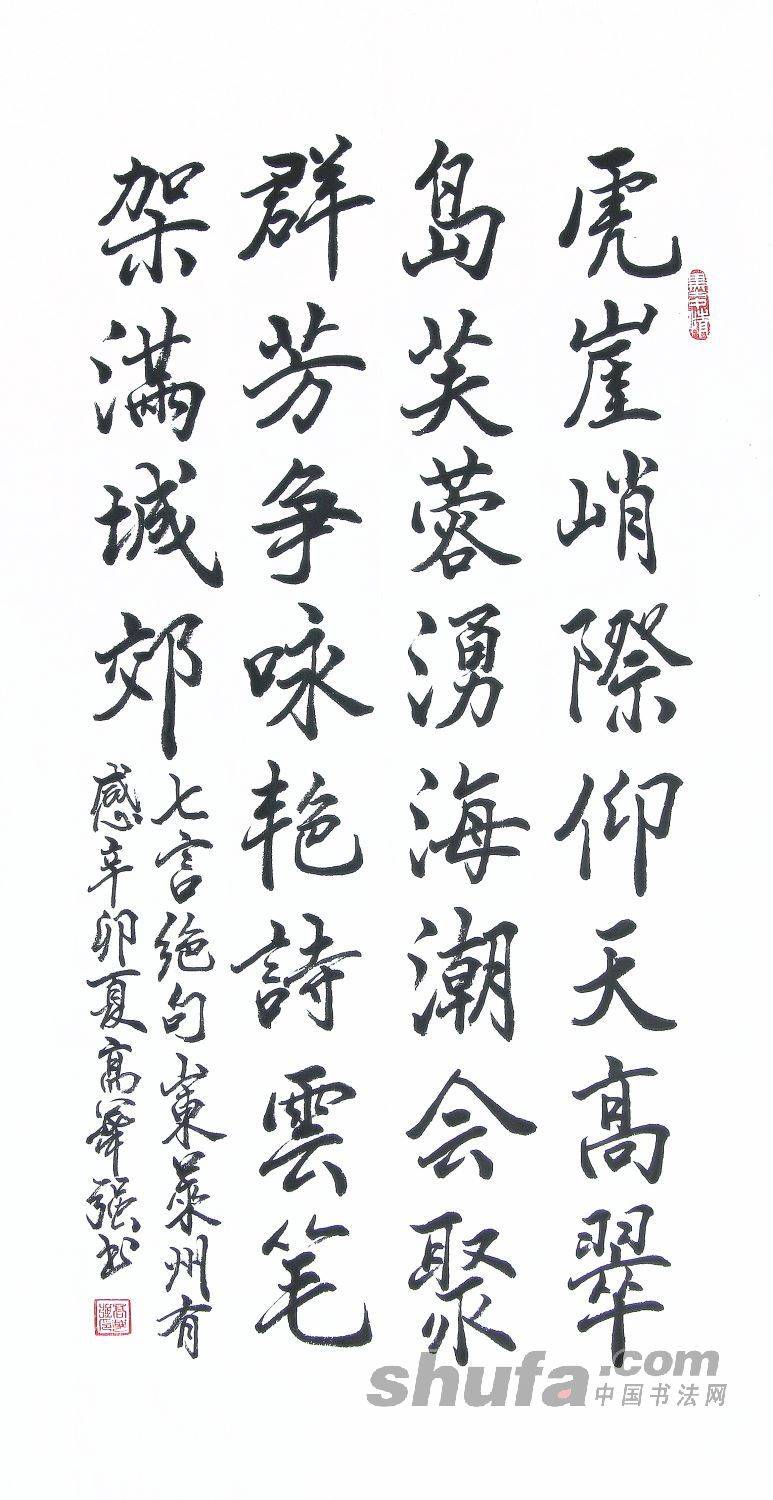 虎崖峭際仰天高翠
島芙蓉湧海潮会聚
群芳争咏艳詩雲笔
架满城郊
七言绝句山東萊州有
感辛卯夏高華强书
shufa.com
中国书法网